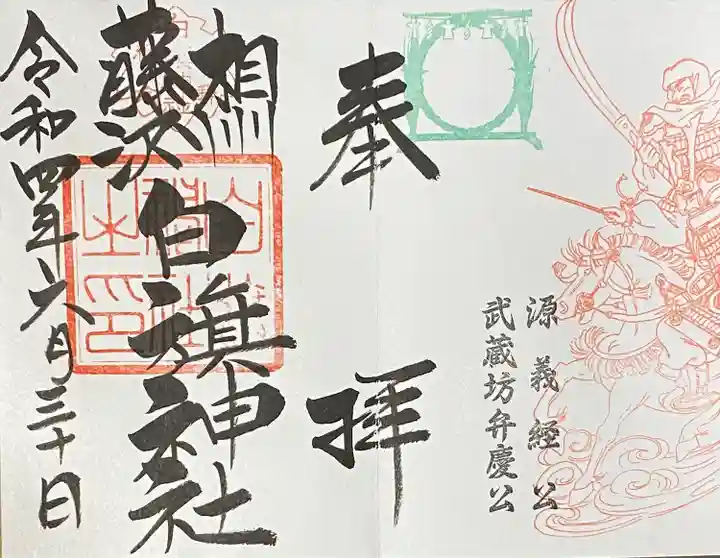 源義経公
武蔵坊弁慶公
奉拝
相州
藤沢
白旗神社
令和四年六月三十日